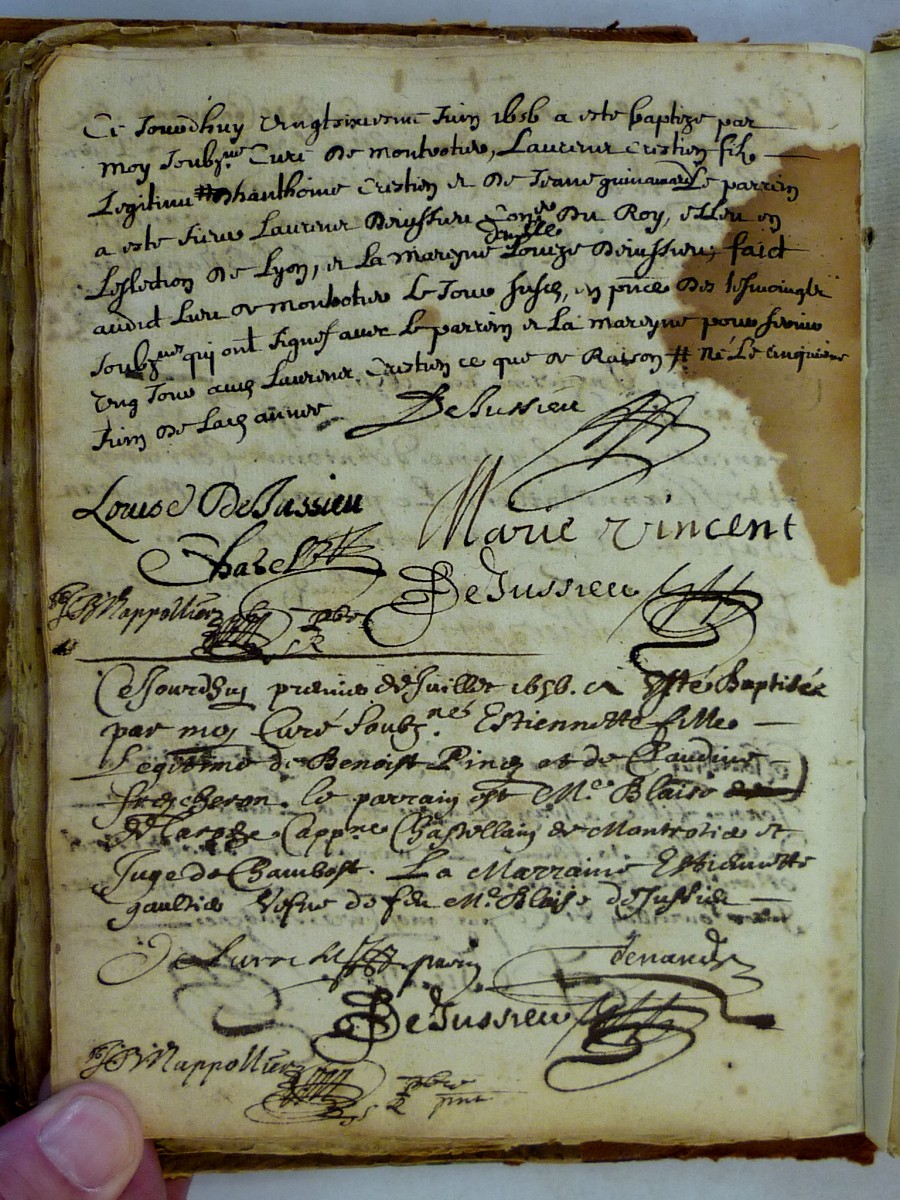 Ce Jourdhuy vingtsixiesme Juin 1656 a este baptize par
moy soubz.né Curé de montrotier, Laurens Crestien filz
Legitime # danthoine Crestien et de Jeane Le parrin
a este sieur Laurens Dejussieu Con.er Du Roy, esleu en
Leslection De Lyon, et La mareyne dam.lle Louize Dejussieu, faict
audict Lieu de montrotier Le Jour susd, en pnce des tesmoingtz
soubz.nez qui ont signes avec Le parrein et La mareyne pour servir
ung Jour aud Laurens Crestien ce que de Raison # né Le cinquième
Juin De Lad année
DeJussieu
Louise DeJussieu
Marie Vincent
DeJussieu
Mappollier pbre
Cejourdhuy premier de Juillet 1656. a Esté Baptisée
par moy Curé soubz.nés Estiennette fille
Legitime de Benoist Pincy et de Claudine
le parrain est M.e Blaise
Cappne Chastellain de Montrotier et
Juge de Chambost. La Marraine Estiennette
gaultier Vefve de feu M.e Blaise deJussieu
parin
DeJussieu
Mappollier pbre